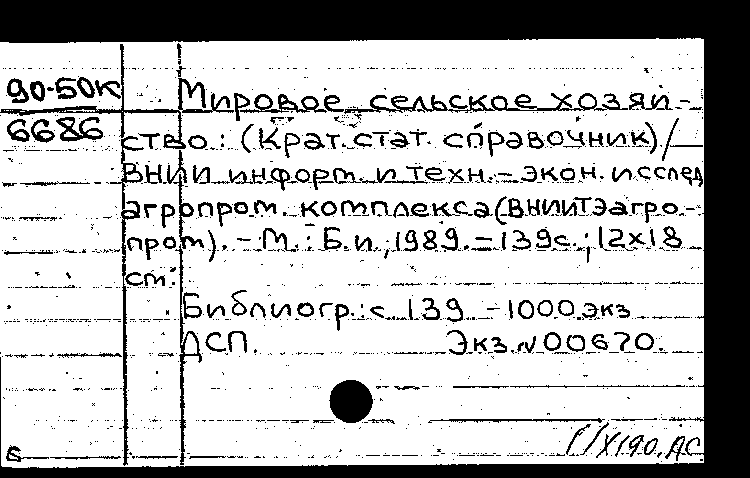 90-50К
6686
Мировое сельское хозяй-
ство: (Крат. стат. справочник) /
ВНИИ информ. и техн.-экон. исслед
агропром. комплекса (ВНИИТЭагро-
пром). - М.: Б.и., 1989. - 139с.; 12х18
см.
Библиогр.: с 139 - 1000 экз
ДСП. Экз. N 00670.
Б
/X190. ДС